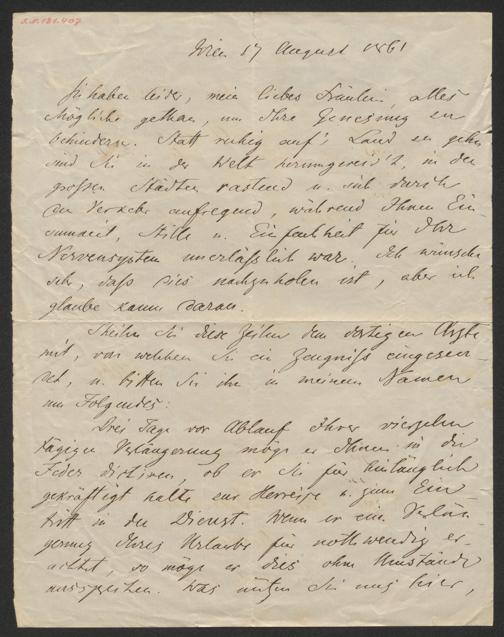 Wien 17 August 1861
Sie haben leider, mein liebes Fräulein, alles
Mögliche gethan, um Ihre Genesung zu
behindern. Statt ruhig auf's Land zu gehen
sind Sie in der Welt herumgereis't, in den
großen Städten rastend u. sich durch
den Verkehr aufregend, während Ihnen Ein-
samkeit, Stille u. Einfachheit für Ihr
Nervensystem unerläßlich war. Ich wünsche
sehr, daß dies nachzuholen ist, aber ich
glaube kaum daran.
Theilen Sie diese Zeilen dem dortigen Arzte
mit, von welchem Sie ein Zeugniß eingesen-
det, u. bitten Sie ihn in meinem Namen
um Folgendes:
Drei Tage vor Ablauf Ihrer vierzehn
tägigen Verlängerung möge er Ihnen in die
Feder dictiren, ob er Sie für hinlänglich
gekräftigt halte zur Herreise u. zum Ein-
tritt in den Dienst. Wenn er eine Verlän-
gerung Ihres Urlaubs für nothwendig er-
achtet, so möge er dies ohne Umstände
aussprechen. Was nützen Sie uns hier,